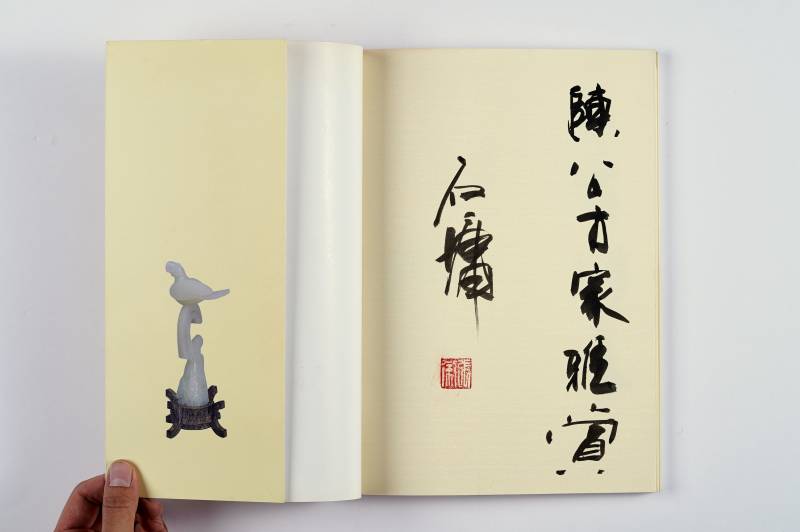 陳公方家雅賞
石墉